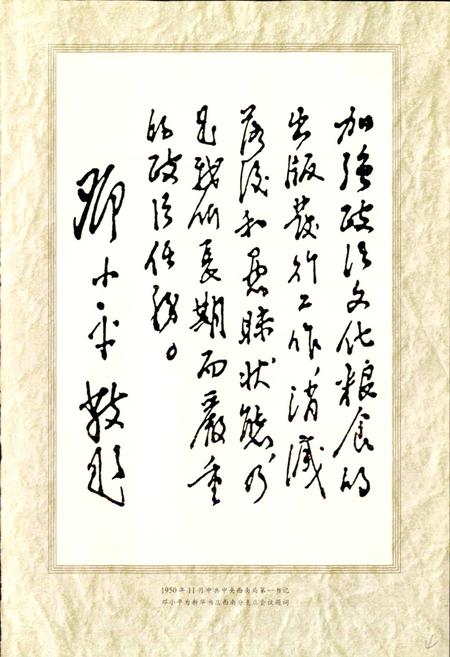 加强政治文化粮食的
出版發行工作，消滅
落後和愚昧狀態，乃
是我們長期而嚴重
的政治任務。
鄧小平敬題
1950年11月中共中央西南局第一书记
邓小平为新华书店西南分支店会议题词